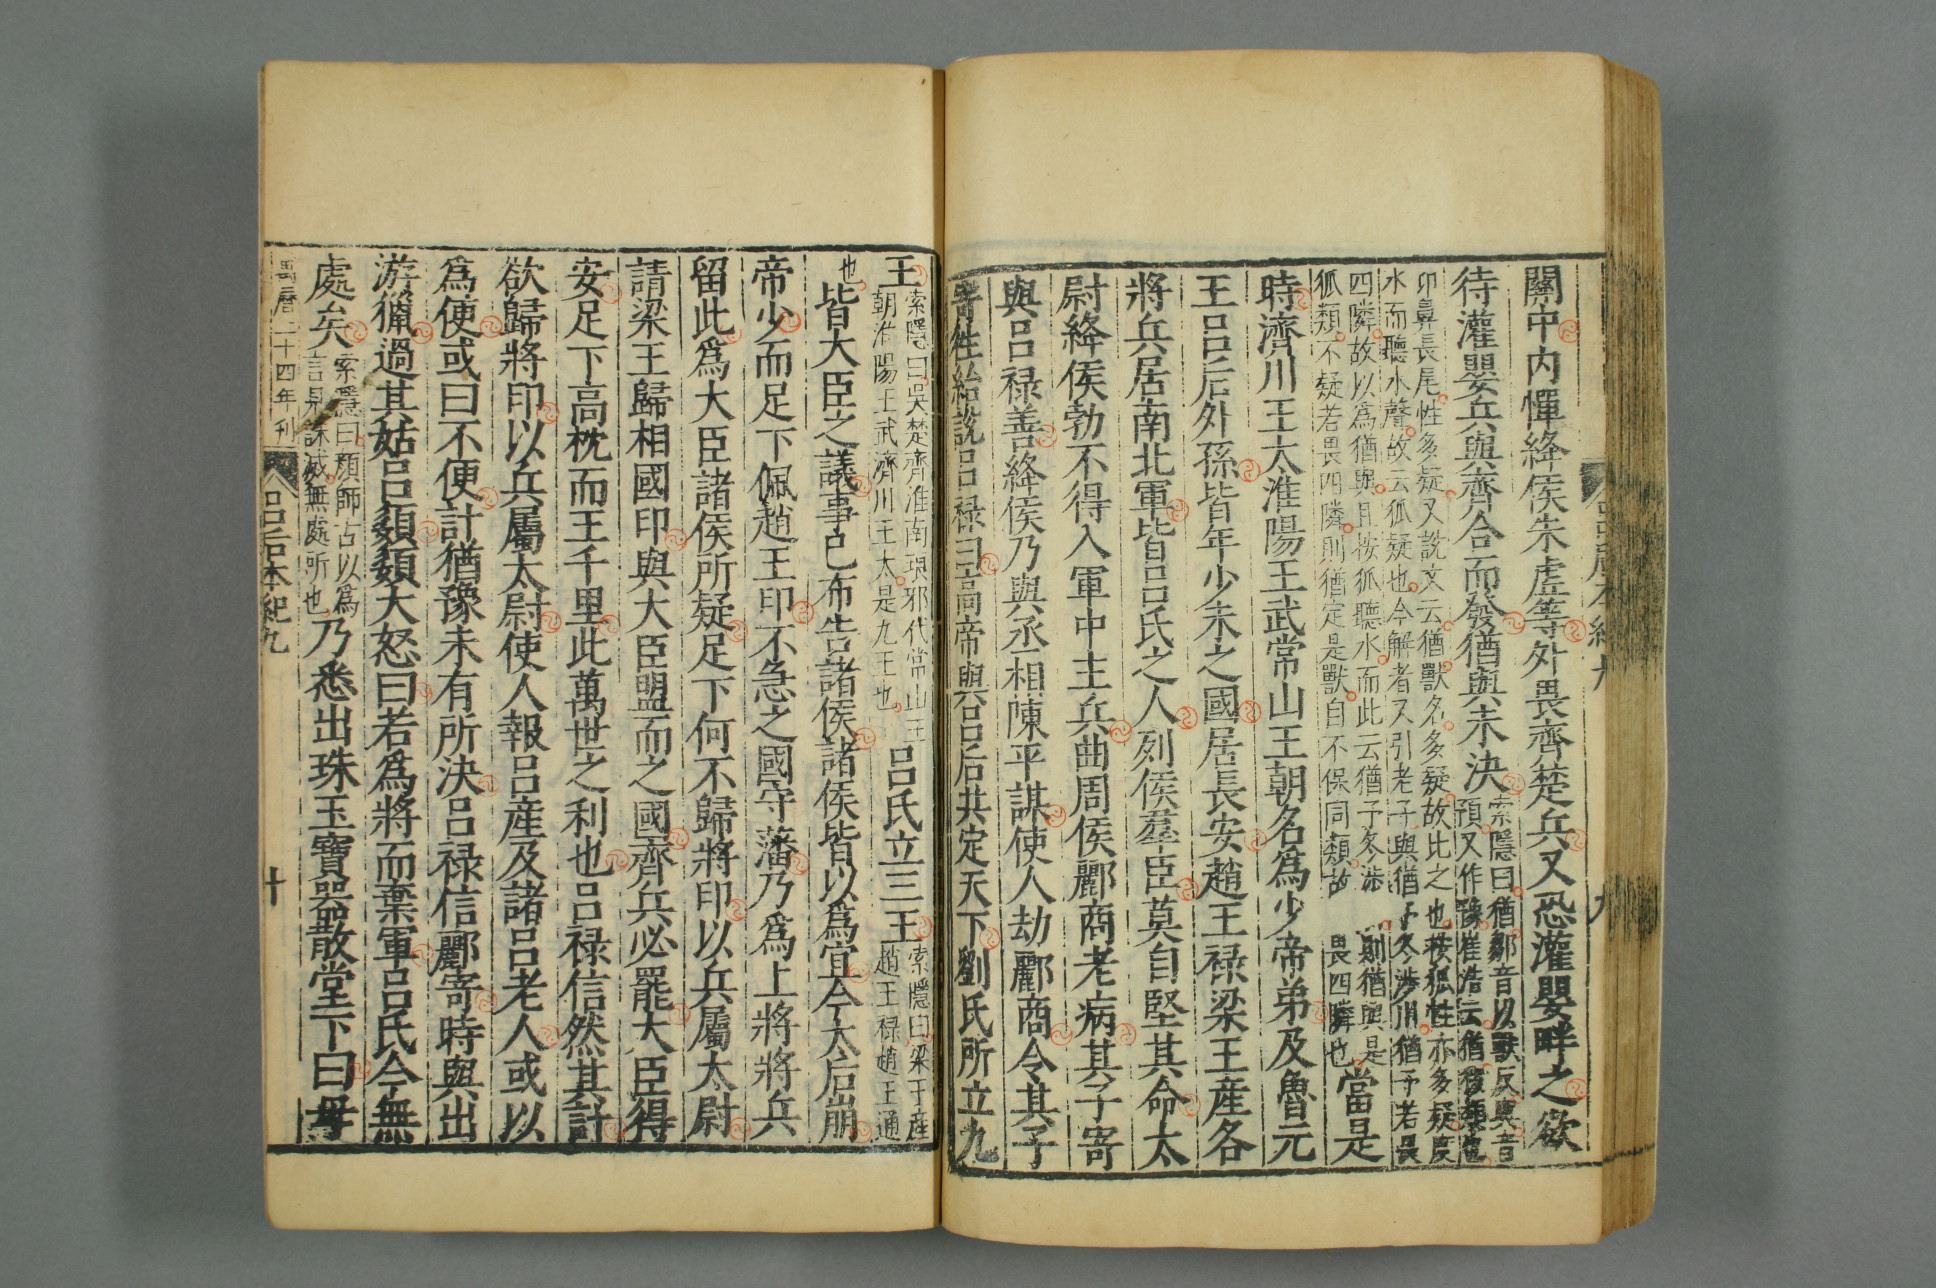 關中内憚絳侯朱虚等外畏齊楚兵又恐灌嬰畔之欲
待灌嬰兵與齊合而發猶與未決
索隱曰猶鄒音以獸反與音
預又作豫崔浩云猶蝯類也
卬鼻長尾性多疑又說文云猶獸名多疑故比之也按狐性亦多疑度
水而聽水聲故云狐疑也今解者又引老子與猶予冬涉川猶予若畏
四隣故以為猶與且按狐聽水而此云猶予冬涉則猶與是
狐類不疑若畏四隣則猶定是獸自不保同類故畏四隣也
當是
時濟川王太淮陽王武常山王朝名爲少帝弟及魯元
王吕后外孫皆年少未之國居長安趙王禄梁王產各
將兵居南北軍皆吕氏之人列侯羣臣莫自堅其命太
尉絳侯勃不得入軍中主兵曲周侯酈商老病其子寄
與吕禄善絳侯乃與丞相陳平謀使人劫酈商令其子
寄往紿說吕禄曰高帝與吕后共定天下劉氏所立九
王
索隱曰吳楚齊淮南琅邪代常山王
朝淮陽王武濟川王太是九王也
吕氏立三王
索隱曰梁王產
趙王禄趙王通
也
皆大臣之議事已布告諸侯諸侯皆以爲宜今太后崩
帝少而足下佩趙王印不急之國守藩乃爲上將將兵
留此爲大臣諸侯所疑足下何不歸將印以兵屬太尉
請梁王歸相國印與大臣盟而之國齊兵必罷大臣得
安足下高枕而王千里此萬世之利也吕禄信然其計
欲歸將印以兵屬太尉使人報吕產及諸吕老人或以
爲便或曰不便計猶豫未有所決吕禄信酈寄時與出
游獵過其姑吕嬃嬃大怒曰若爲將而棄軍吕氏今無
處矣
索隱曰顔師古以爲
言見誅滅無處所也
乃悉出珠玉寶器散堂下曰毋
萬曆二十四年刊
吕后本紀九
十